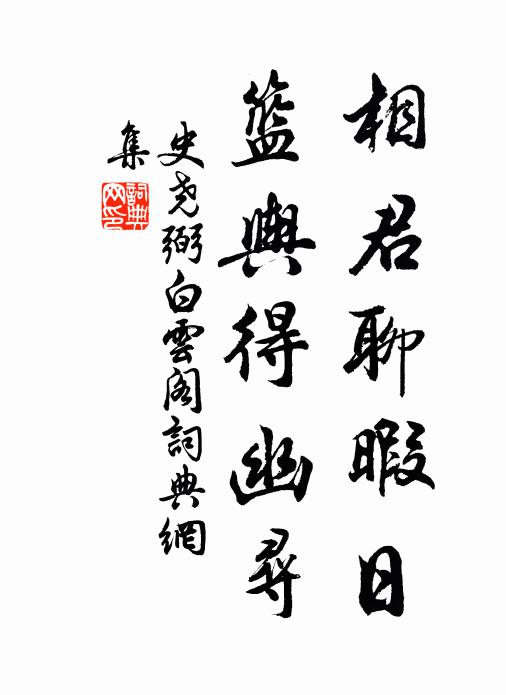 相君聊暇日
籃輿得幽尋
史堯弼白雲閣詞典網
集
詞典
网印